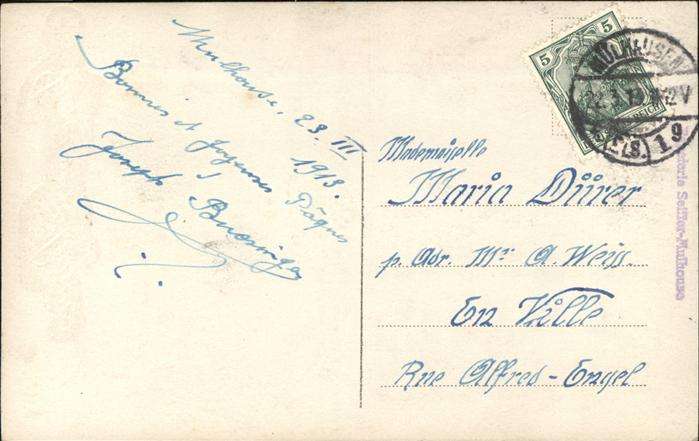 Mulhouse, 23. III 1913.
Bonnes et Joyeuses Pâques
Joseph
Mademoiselle
Maria Dürer
p. Adr. Mr A. Weiss.
En Ville
Rue Alfred-Engel
5
5
MÜLHAUSEN
(ELS.)
19
Selmer-Mulhouse